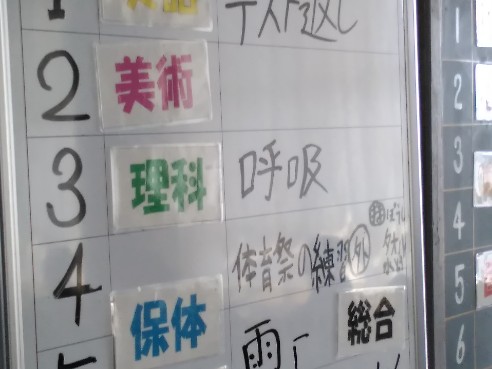 1 テスト返し
2 美術
3 理科 呼吸
4 保体 体育祭の練習 外
総合
雨
1
2
3
4
5
6